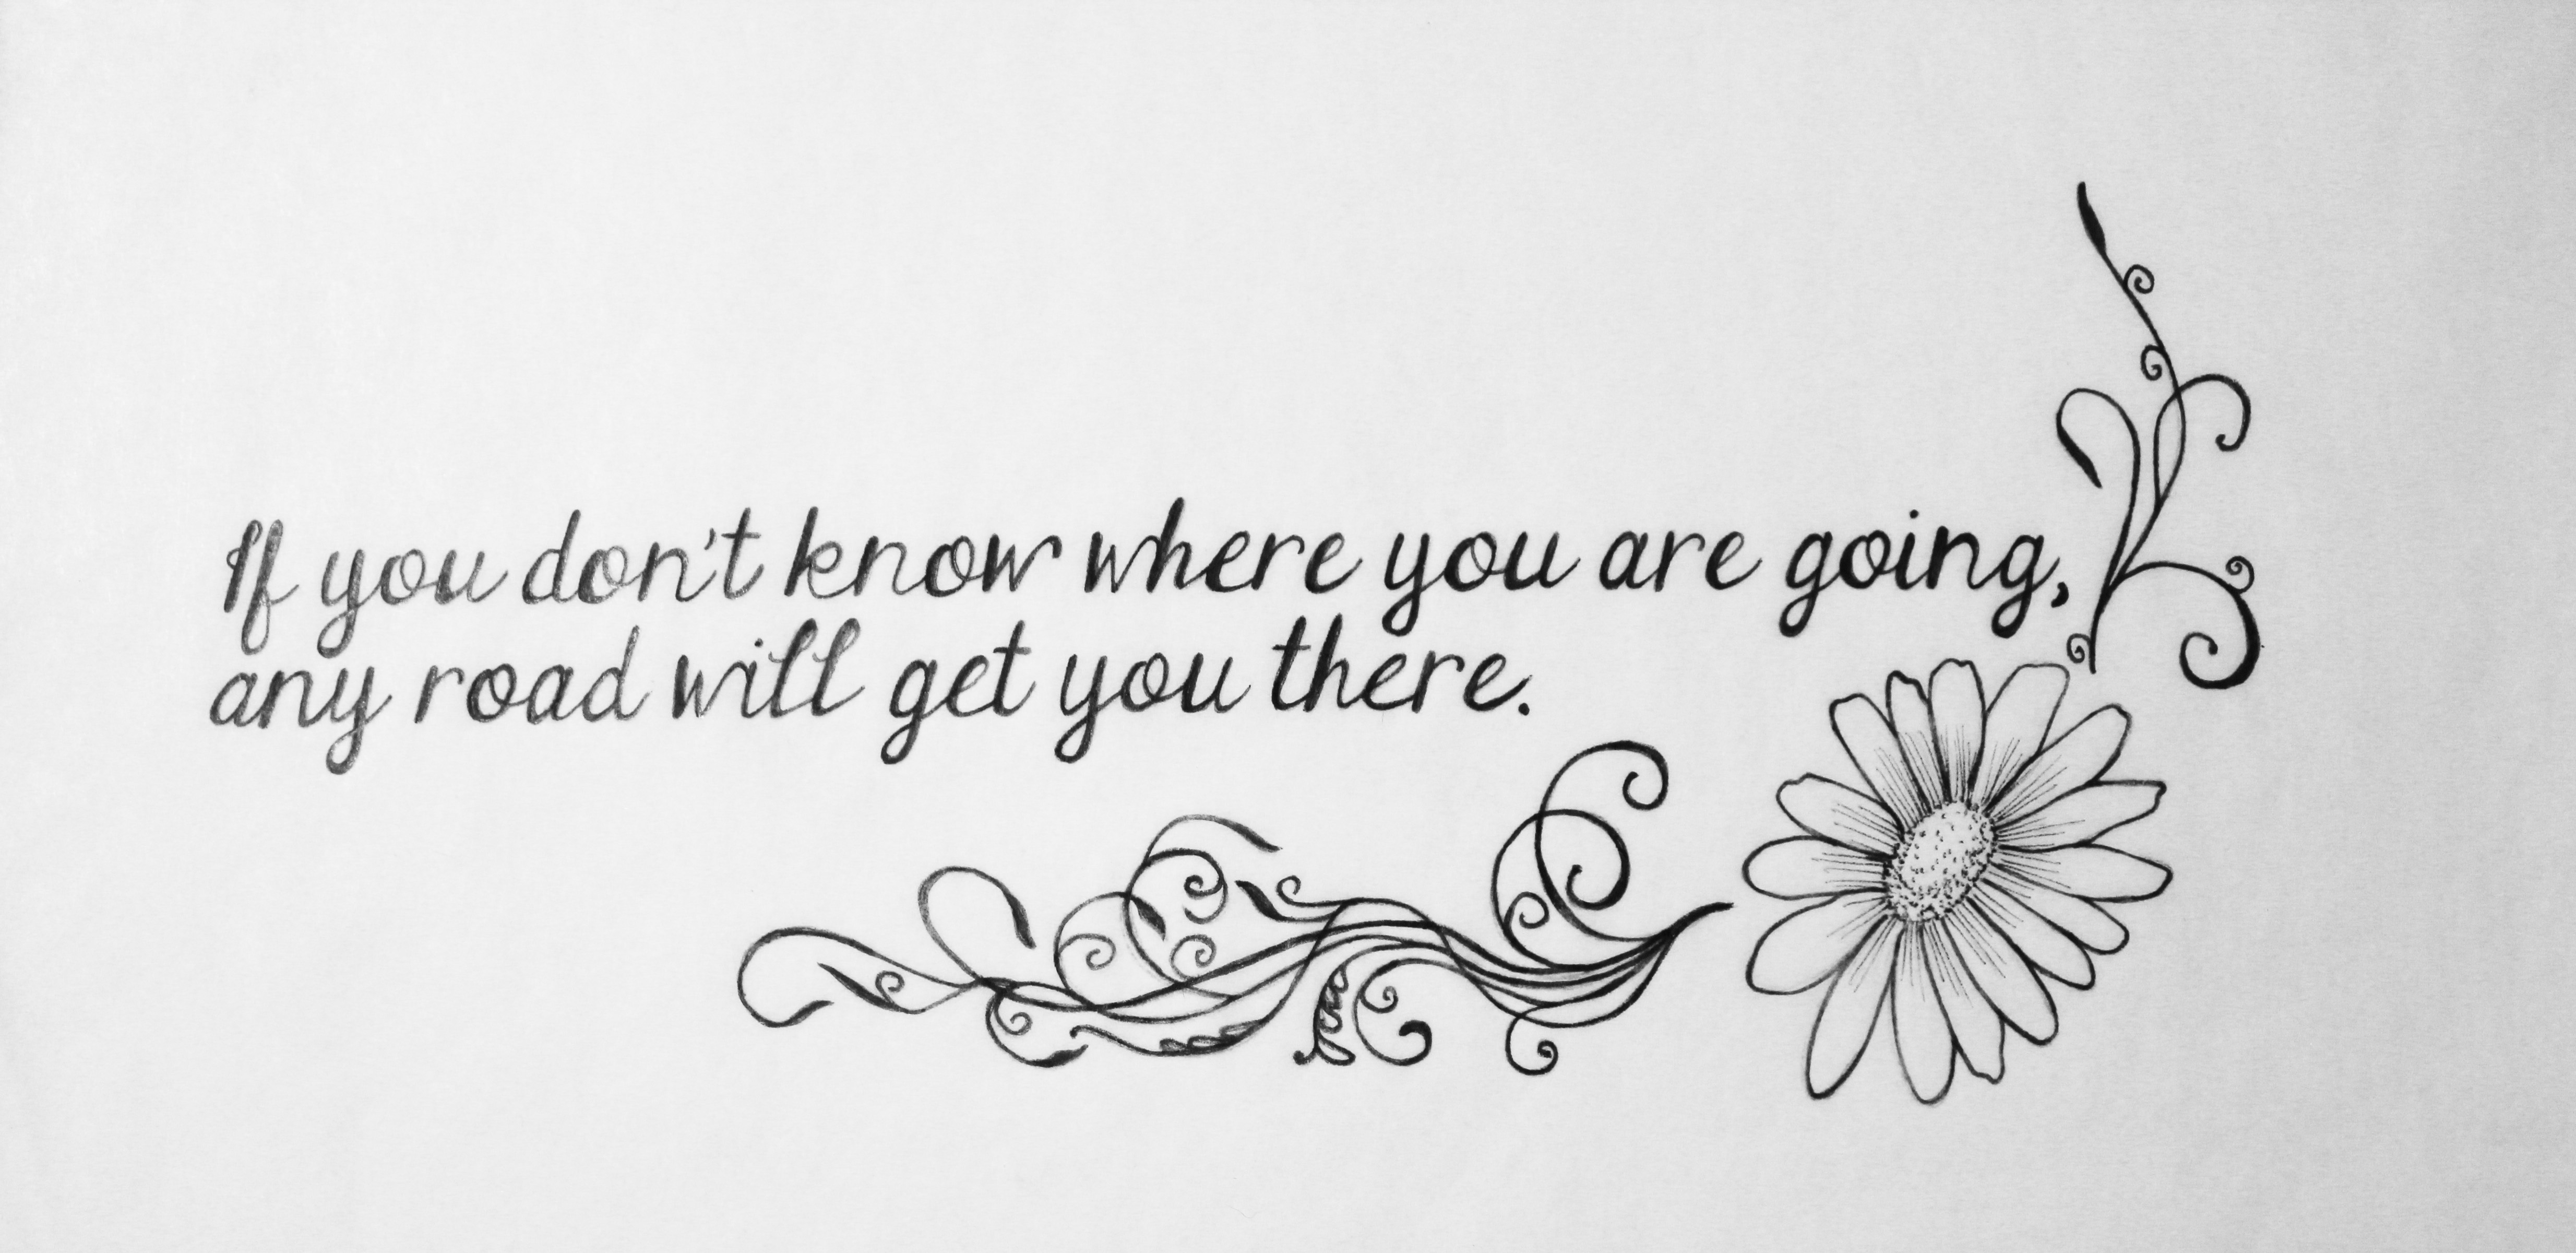 If you don't know where you are going,
any road will get you there.